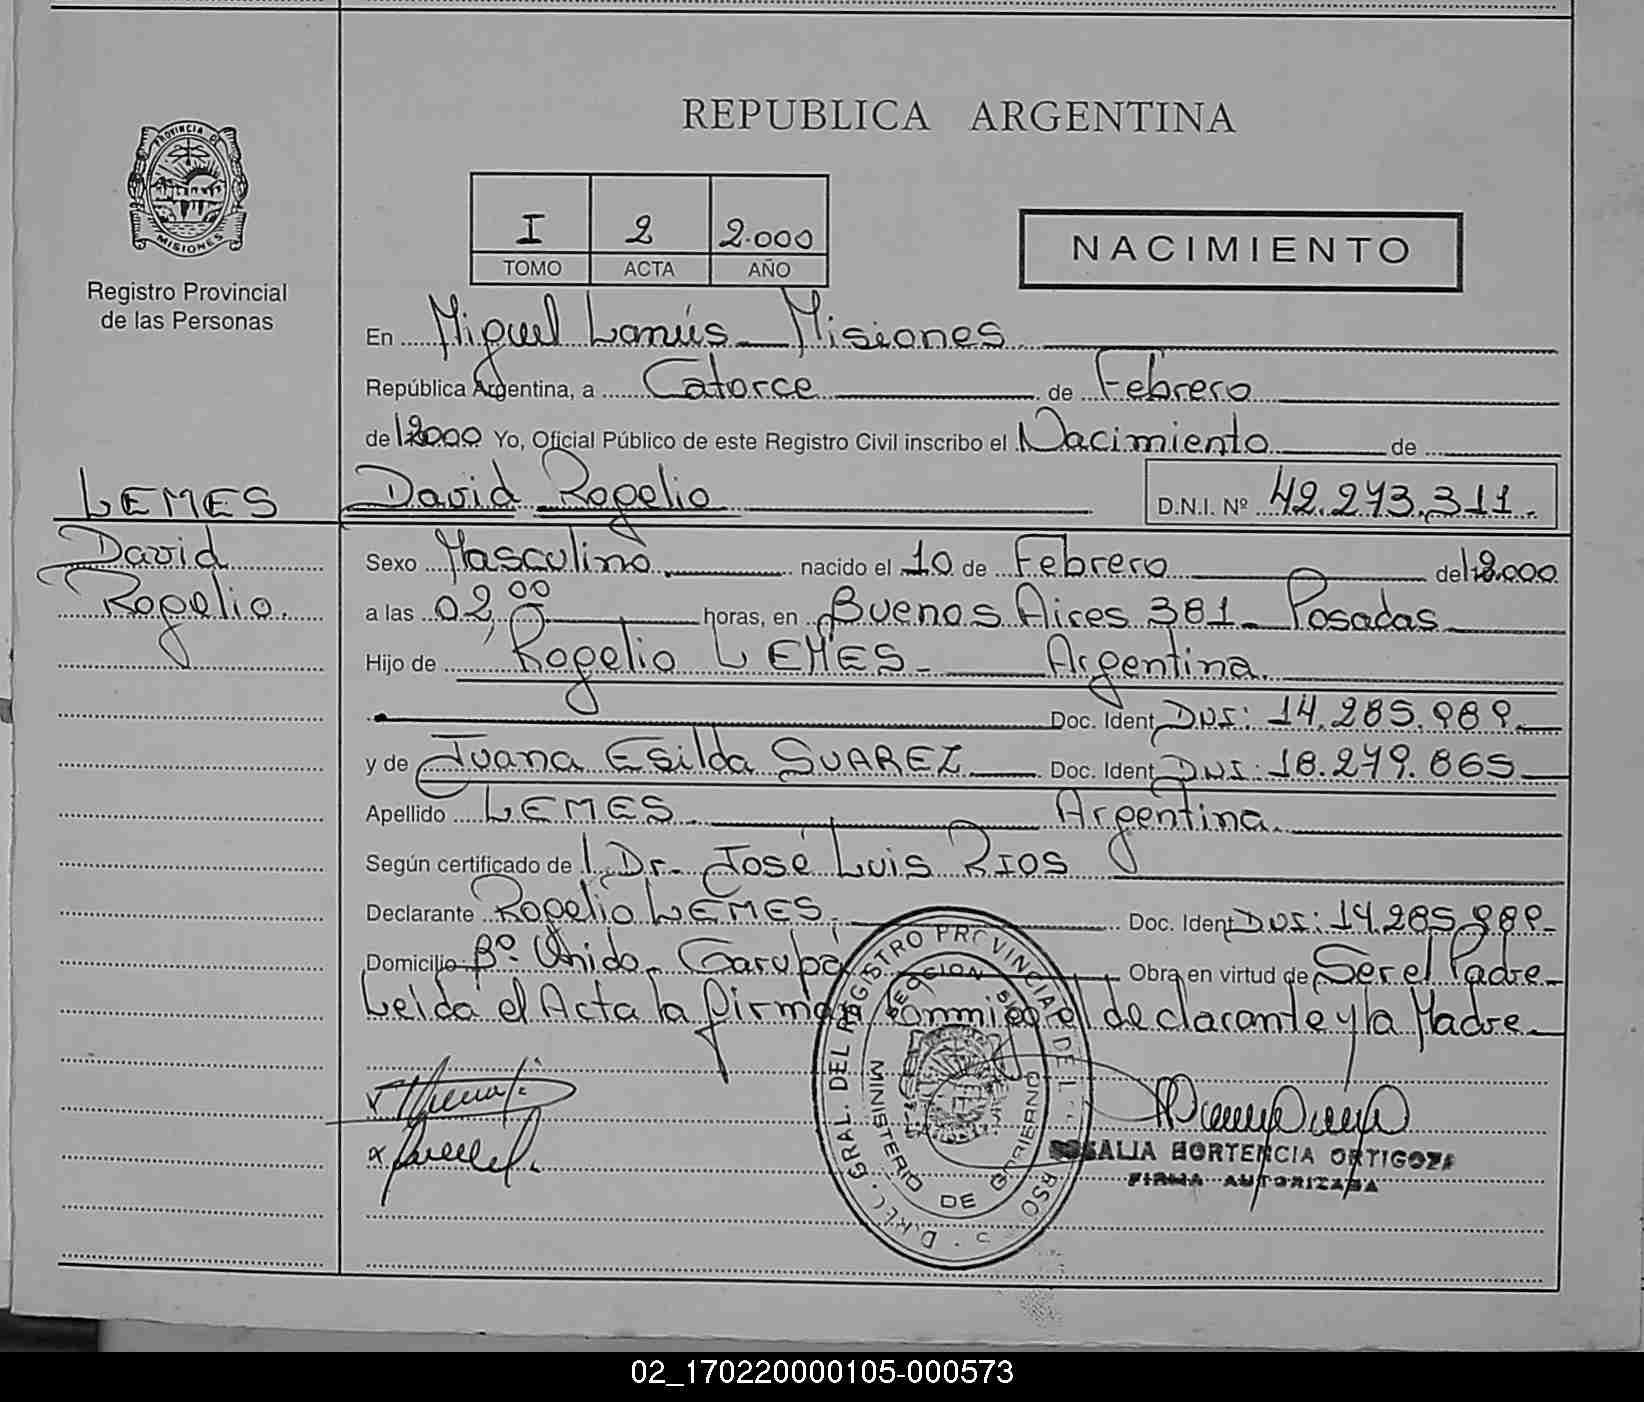 REPUBLICA ARGENTINA
PROVINCIA DE
MISIONES
Registro Provincial
de las Personas
I 2 2.000
TOMO ACTA AÑO
NACIMIENTO
En Miguel Lanús - Misiones
República Argentina, a Catorce de Febrero
de 2000 Yo, Oficial Público de este Registro Civil inscribo el Nacimiento de
LEMES
David Rogelio
David Rogelio D.N.I. Nº 42.273.311.
Sexo Masculino nacido el 10 de Febrero de 2.000
a las 02,00 horas, en Buenos Aires 381 - Posadas
Hijo de Rogelio LEMES - Argentina
Doc. Ident DNI: 14.285.989.
y de Juana Esilda SUAREZ Doc. Ident DNI: 18.279.865
Apellido LEMES Argentina
Según certificado de Dr. José Luis RIOS
Declarante Rogelio LEMES Doc. Ident DNI: 14.285.989-
Domicilio Bº Unido - Garupá Obra en virtud de Ser el Padre -
Leida el Acta la firman conmigo el declarante y la Madre -
GRAL. DEL REGISTRO PROVINCIAL DE L
MINISTERIO DE GOBIERNO
ROSALIA HORTENCIA ORTIGOZA
FIRMA AUTORIZADA
02_170220000105-000573